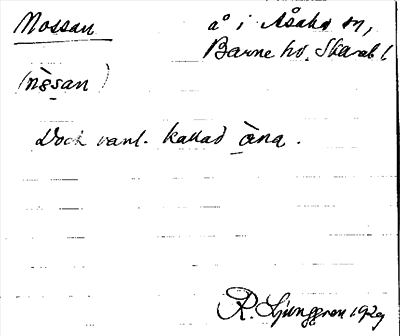 Mossan
å i Åsaka sn,
Barne hd. Skarab l
Dock vanl. kallad å̀na.
R. Ljunggren 1929